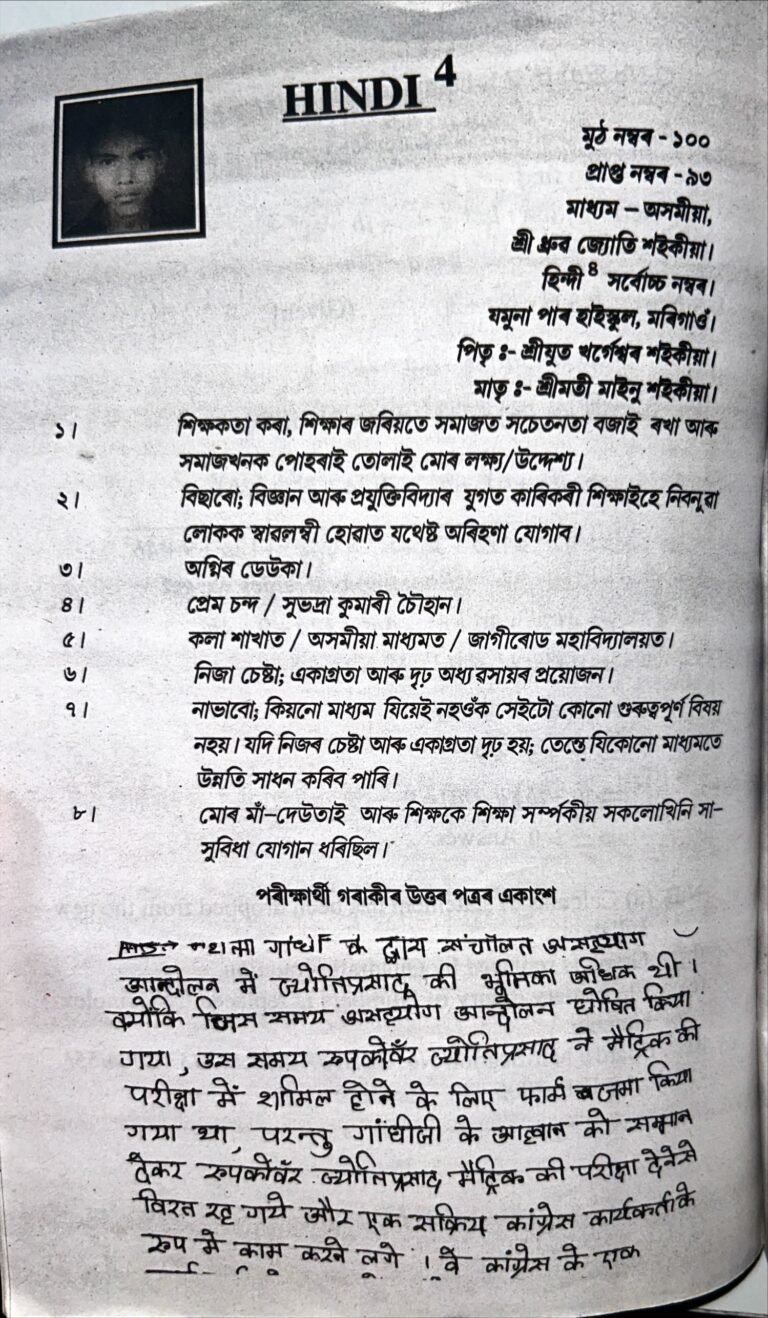 HINDI 4
মুঠ নম্বৰ - ১০০
প্ৰাপ্ত নম্বৰ - ৯৩
মাধ্যম – অসমীয়া,
শ্ৰী ধ্ৰুব জ্যোতি শইকীয়া।
হিন্দী ৪ সৰ্বোচ্চ নম্বৰ।
যমুনা পাৰ হাইস্কুল, মৰিগাওঁ।
পিতৃ ঃ- শ্ৰীযুত খৰ্গেশ্বৰ শইকীয়া।
মাতৃ ঃ- শ্ৰীমতী মাইনু শইকীয়া।
১। শিক্ষকতা কৰা, শিক্ষাৰ জৰিয়তে সমাজত সচেতনতা বজাই ৰখা আৰু
সমাজখনক পোহৰাই তোলাই মোৰ লক্ষ্য/উদ্দেশ্য।
২। বিছাৰো; বিজ্ঞান আৰু প্ৰযুক্তিবিদ্যাৰ যুগত কাৰিকৰী শিক্ষাইহে নিবনুৱা
লোকক স্বাৱলম্বী হোৱাত যথেষ্ট অৰিহণা যোগাব।
৩। অগ্নিৰ ডেউকা।
৪। প্ৰেম চন্দ / সুভদ্ৰা কুমাৰী চৌহান।
৫। কলা শাখাত / অসমীয়া মাধ্যমত / জাগীৰোড মহাবিদ্যালয়ত।
৬। নিজা চেষ্টা; একাগ্ৰতা আৰু দৃঢ় অধ্যৱসায়ৰ প্ৰয়োজন।
৭। নাভাবো; কিয়নো মাধ্যম যিয়েই নহওঁক সেইটো কোনো গুৰুত্বপূৰ্ণ বিষয়
নহয়। যদি নিজৰ চেষ্টা আৰু একাগ্ৰতা দৃঢ় হয়; তেন্তে যিকোনো মাধ্যমতে
উন্নতি সাধন কৰিব পাৰি।
৮। মোৰ মাঁ–দেউতাই আৰু শিক্ষকে শিক্ষা সৰ্ম্পকীয় সকলোখিনি সা-
সুবিধা যোগান ধৰিছিল।
পৰীক্ষাৰ্থী গৰাকীৰ উত্তৰ পত্ৰৰ একাংশ
गांधी के द्वारा संचालित असहयोग
आन्दोलन में ज्योतिप्रसाद की भूमिका अधिक थी।
क्योंकि जिस समय असहयोग आन्दोलन घोषित किया
गया, उस समय रुपकोवँर ज्योतिप्रसाद ने मैट्रिक की
परीक्षा में शामिल होने के लिए फार्म जमा किया
गया था, परन्तु गांधीजी के आह्वान को सम्मान
देकर रुपकोवँर ज्योतिप्रसाद मैट्रिक की परीक्षा देनेसे
विरत रह गये और एक सक्रिय कांग्रेस कार्यकर्ता के
रुप मे काम करने लगे। वे कांग्रेस के एक